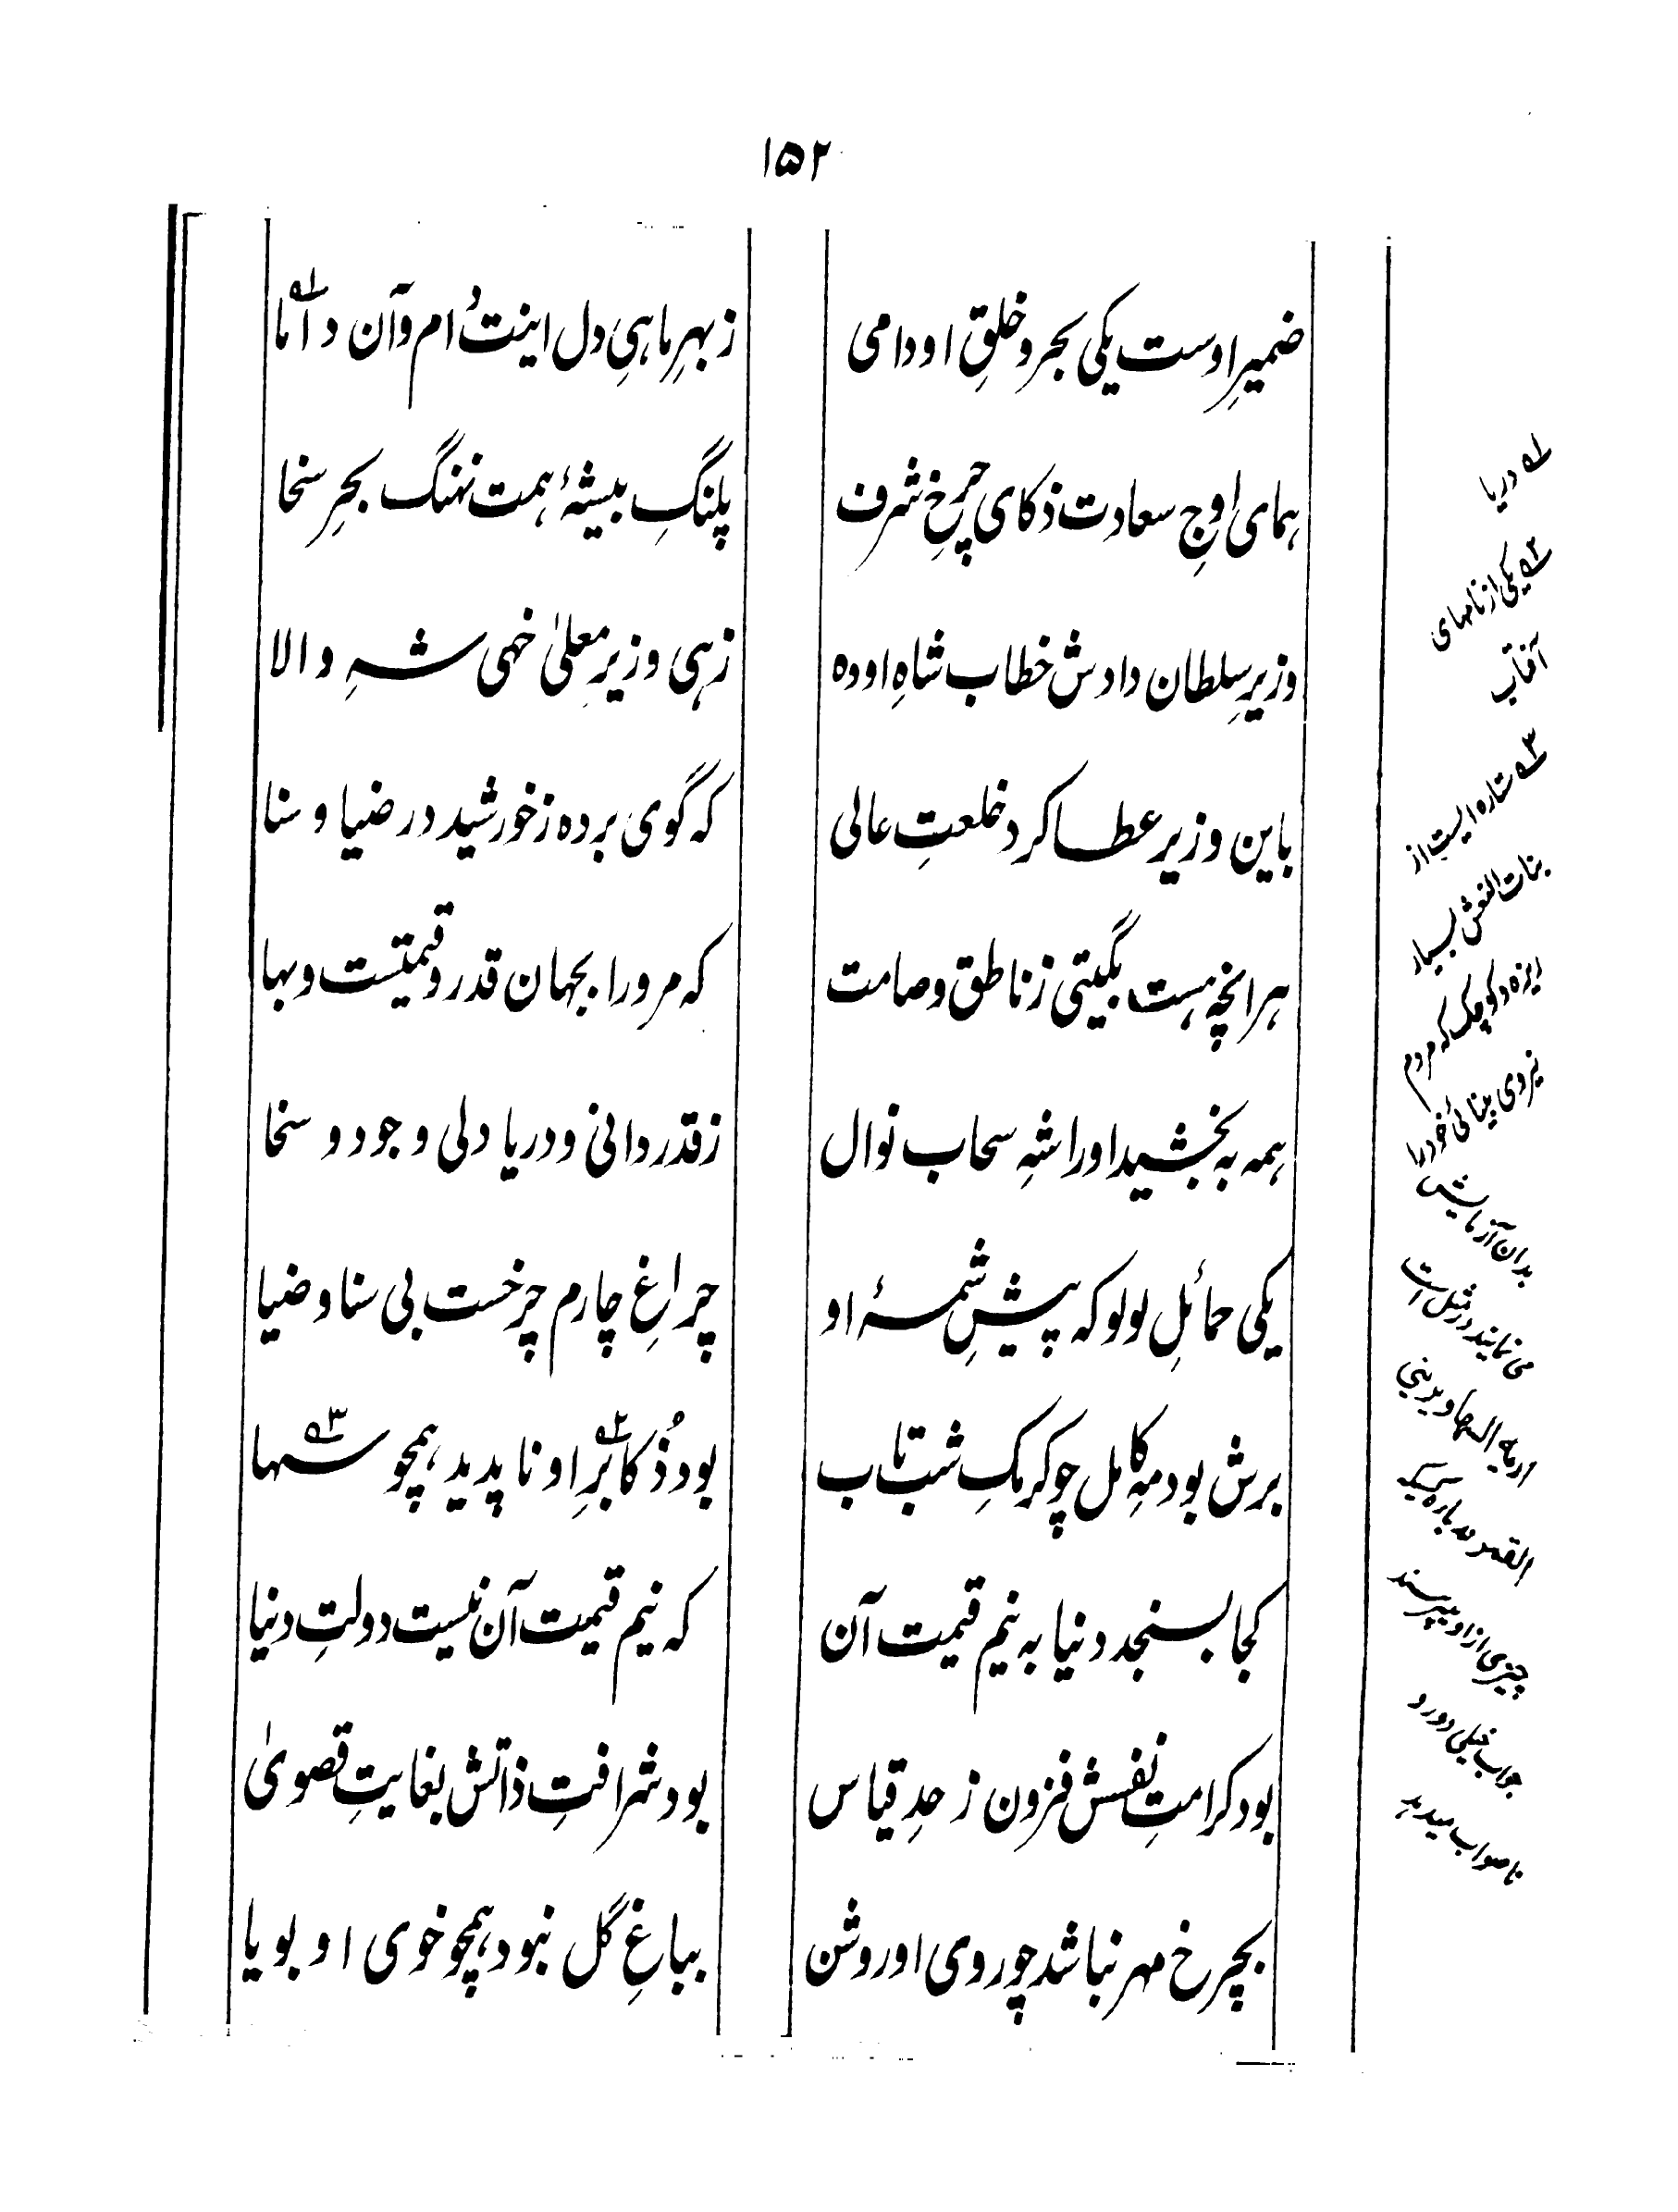 ۱۵۲
ضمیرِ اوست یکی بحر و خلقِ او دامی
ز بهرِ ماهیِ دل اینت دام و آن داما
همای اوجِ سعادت ذکای چرخِ شرف
پلنگِ بیشهٔ همت نهنگ بحرِ سخا
وزیرِ سلطان دادش خطاب شاهِ اوده
زهی وزیرِ معلیٰ خهی شهِ والا
باین وزیر عطا کرد خلعتِ عالی
که گوی برده ز خورشید در ضیا و سنا
هر انچه هست بگیتی ز ناطق و صامت
که مرورا بجهان قدر و قیمتست و بها
همه به بخشید او را شهِ سحاب نوال
ز قدردانی و دریا دلی و جود و سخا
یکی حمائلِ لولو که پیشِ شمسهٔ او
چراغِ چارم چرخست بی سنا و ضیا
برش بود مهِ کامل چو کرمکِ شب تاب
بود ذُکا۲ برِ او ناپدید همچو سها۳
کجا بسنجد دنیا به نیم قیمت آن
که نیم قیمت آن نیست دولتِ دنیا
بود کرامتِ نفسش فزون ز حدِ قیاس
بود شرافتِ ذاتش بغایتِ قصویٰ
بچرخ مهر نباشد چو روی او روشن
بباغِ گل نبود همچو خوی او بویا
۱ دریا
۲ یکی از نامهای
آفتاب
۳ ستاره ایست از
بنات النعش بسیار
ریزه و کوچک که مردم
نیروی بینائی خود را
بدان آزمایش
می نمایند در مثل است
اریه السها و یرینی
القمر درباره کسیکه
چیزی از او میپرسند
جواب خیلی دور و
ناصواب میدهد